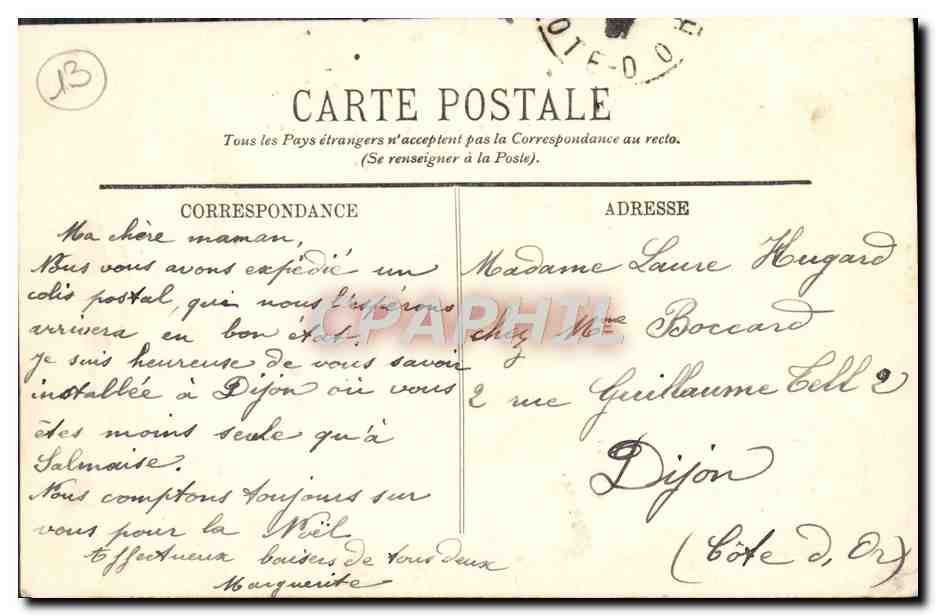 13
COTE-D'OR
CARTE POSTALE
Tous les Pays étrangers n'acceptent pas la Correspondance au recto.
(Se renseigner à la Poste).
CORRESPONDANCE
Ma chère maman,
Nous vous avons expédié un
colis postal, qui nous l'espérons
arrivera en bon état.
Je suis heureuse de vous savoir
installée à Dijon où vous
êtes moins seule qu'à
Salmaise.
Nous comptons toujours sur
vous pour la Noël
Affectueux baisers de tous deux
Marguerite
ADRESSE
Madame Laure Hugard
chez Mme Boccard
2 rue Guillaume Tell 2
Dijon
(Côte d, Or)
CPAPHIL